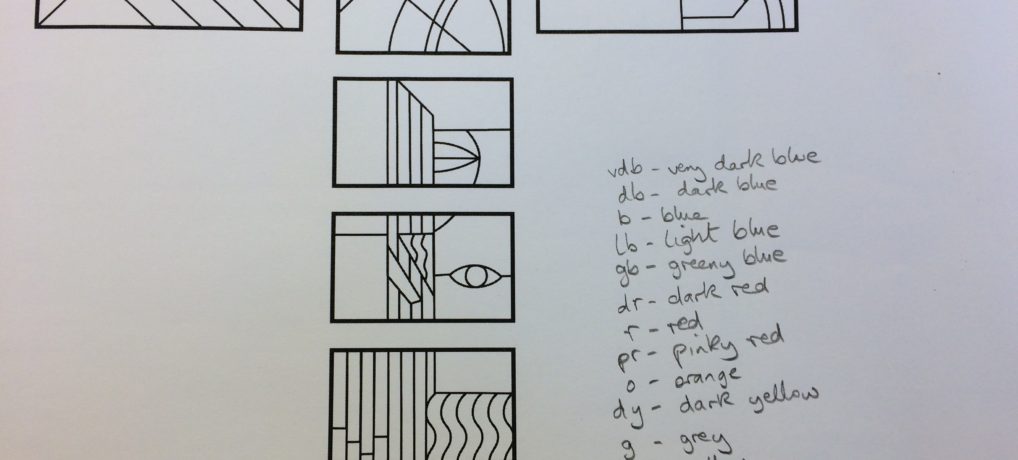 vdb - very dark blue
db - dark blue
b - blue
lb - light blue
gb - greeny blue
dr - dark red
r - red
pr - pinky red
o - orange
dy - dark yellow
g - grey